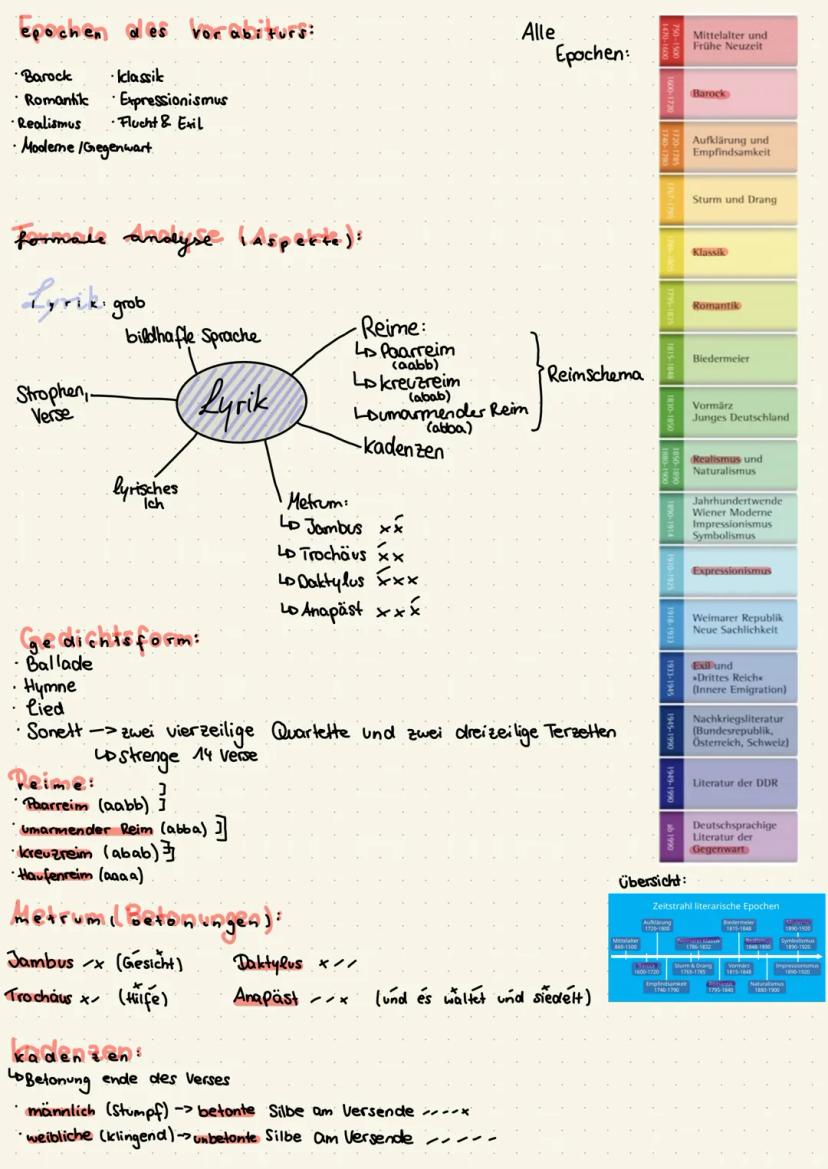 Epochen des Vorabiturs:
· Barock · Klassik
· Romantik · Expressionismus
· Realismus · Flucht & Exil
· Moderne /Gegenwart
Alle
Epochen:
750-1500
1470-1600
Mittelalter und
Frühe Neuzeit
1600-1720
Barock
1720-1785
1740-1780
Aufklärung und
Empfindsamkeit
Sturm und Drang
Klassik
1795-1835
Romantik
1815-1848
Biedermeier
1830-1850
Vormärz
Junges Deutschland
1850-1890
1880-1900
Realismus und
Naturalismus
1890-1914
Jahrhundertwende
Wiener Moderne
Impressionismus
Symbolismus
1910-1925
Expressionismus
1918-1933
Weimarer Republik
Neue Sachlichkeit
1933-1945
Exil und
»Drittes Reich«
(Innere Emigration)
1945-1990
Nachkriegsliteratur
(Bundesrepublik,
Österreich, Schweiz)
1949-1990
Literatur der DDR
ab 1990
Deutschsprachige
Literatur der
Gegenwart
formale Analyse (Aspekte):
Lyrik: grob
bildhafte Sprache
Strophen,
Verse
Lyrik
lyrisches
Ich
Reime:
↳ Paarreim
(aabb)
↳ kreuzreim
(abab)
↳ umarmender Reim
(abba)
Reimschema
kadenzen
Metrum:
↳ Jambus x x́
↳ Trochäus x́ x
↳ Daktylus x́ x x
↳ Anapäst x x x́
Gedichtsform:
· Ballade
· Hymne
· Lied
· Sonett —> zwei vierzeilige Quartette und zwei dreizeilige Terzetten
↳ strenge 14 Verse
Reime:
· Paarreim (aabb)
· umarmender Reim (abba)
· kreuzreim (abab)
· Haufenreim (aaaa)
Metrum (Betonungen):
Jambus -x (Gesicht) Daktylus x--
Trochäus x- (Hilfe) Anapäst --x (und es waltet und siedelt)
kadenzen:
↳ Betonung ende des Verses
· männlich (Stumpf) -> betonte Silbe am Versende ----x
· weibliche (klingend) -> unbetonte Silbe am Versende -----
Übersicht:
Zeitstrahl literarische Epochen
Aufklärung
1720-1800
Biedermeier
1815-1848
1890-1920
Mittelalter
Klassik
1786-1832
1848-1890
Symbolismus
1890-1920
1600-1720
Sturm & Drang
1765-1785
Vormärz
1815-1848
Impressionismus
1890-1920
Empfindsamkeit
1740-1790
Romantik
1795-1848
Naturalismus
1880-1900